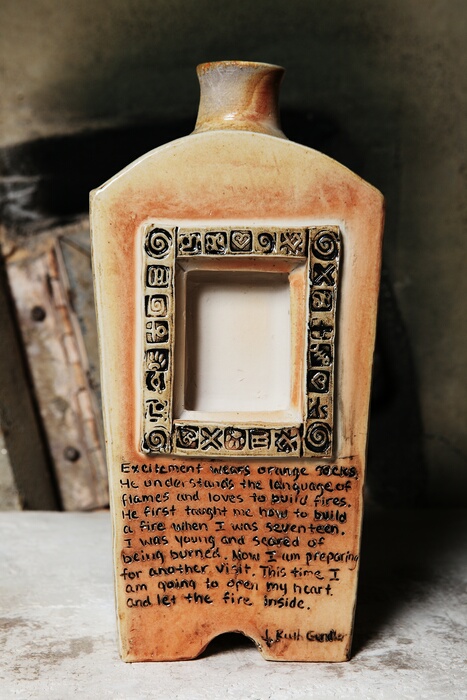 Excitement wears orange socks.
He understands the language of
flames and loves to build fires.
He first taught me how to build
a fire when I was seventeen.
I was young and scared of
being burned. Now I am preparing
for another visit. This time I
am going to open my heart
and let the fire inside.
J. Ruth Gendler